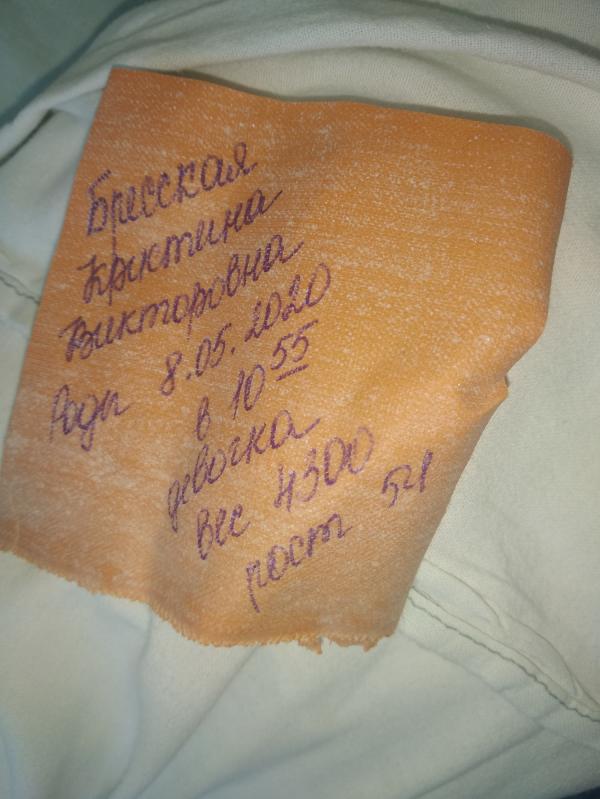 Бресская
Кристина
Викторовна
Роды 8.05.2020
в 10 55
девочка
вес 4300
рост 54